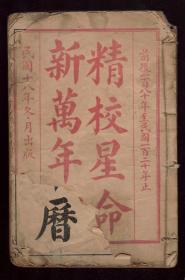 前淸二百八十年至民國一百二十年止
精校星命
新萬年曆
民國十八年冬月出版